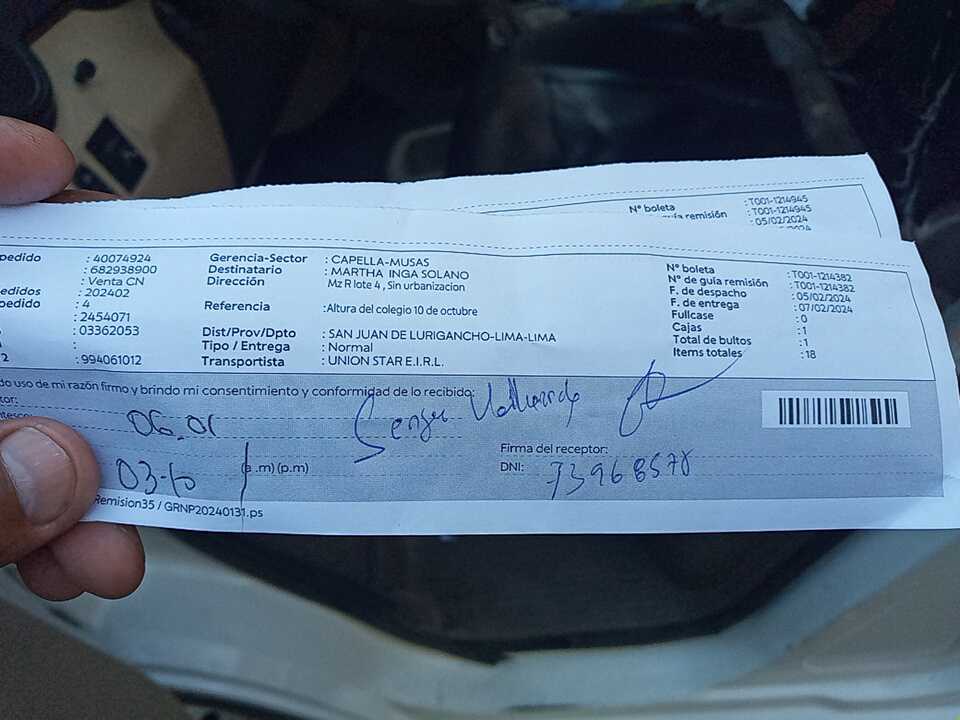 N° boleta : T001-1214945
guía remisión : T001-1214945
: 05/02/2024
pedido : 40074924
: 682938900
: Venta CN
pedidos : 202402
pedido : 4
: 2454071
: 03362053
:
2 : 994061012
Gerencia-Sector : CAPELLA-MUSAS
Destinatario : MARTHA INGA SOLANO
Dirección Mz R lote 4 , Sin urbanizacion
Referencia : Altura del colegio 10 de octubre
Dist/Prov/Dpto : SAN JUAN DE LURIGANCHO-LIMA-LIMA
Tipo / Entrega : Normal
Transportista : UNION STAR E.I.R.L.
N° boleta : T001-1214382
N° de guía remisión : T001-1214382
F. de despacho : 05/02/2024
F. de entrega : 07/02/2024
Fullcase : 0
Cajas : 1
Total de bultos : 1
Items totales : 18
do uso de mi razón firmo y brindo mi consentimiento y conformidad de lo recibido:
tor:
ntesco:
03-10 (a .m) (p.m)
Firma del receptor:
DNI: 73968578
Remision35 / GRNP20240131.ps